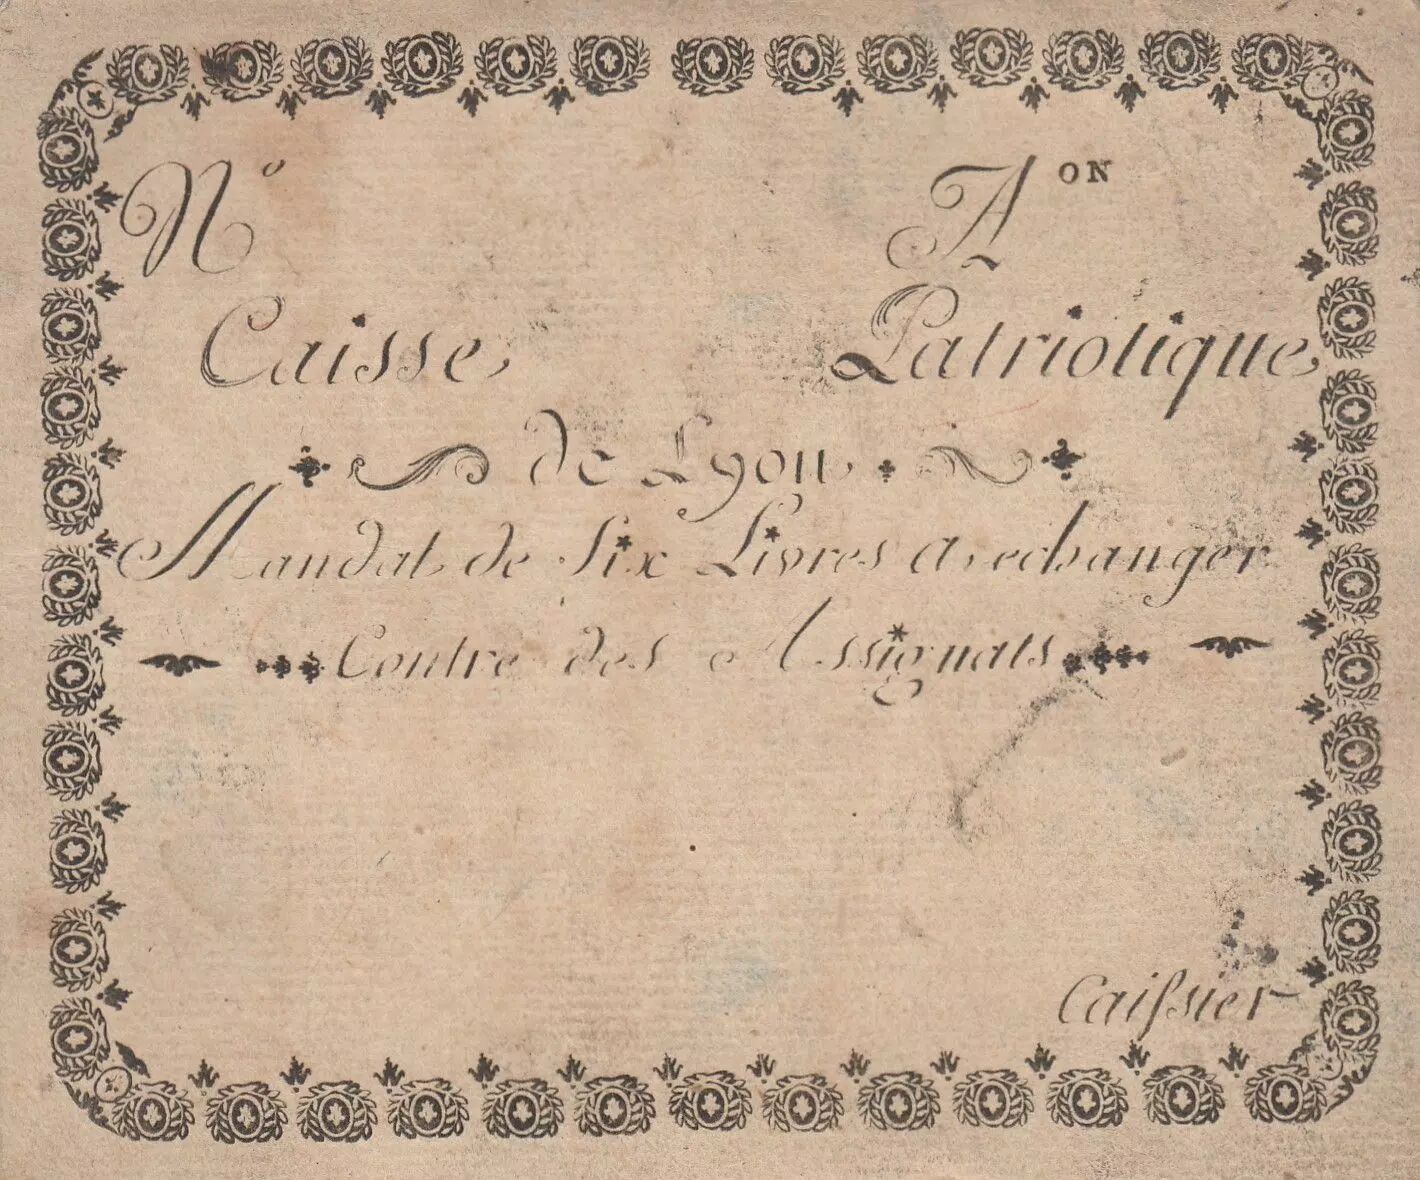 N° A ON
Caisse Patriotique
de Lyon
Mandat de Six Livres a echanger
Contre des Assignats
Caissier